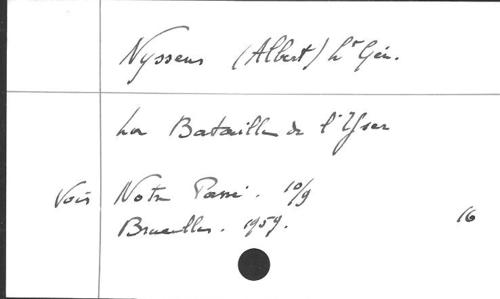 Nyssens (Albert) Lt Gén.
La Bataille de l'Yser
Voir Notre Passé. 10/9
Bruxelles. 1959. 16